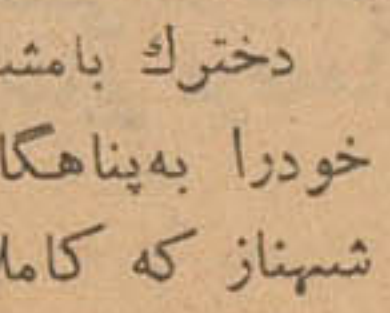 دخترك بامشـ
خودرا به‌پناهگا
شهناز که کاملا